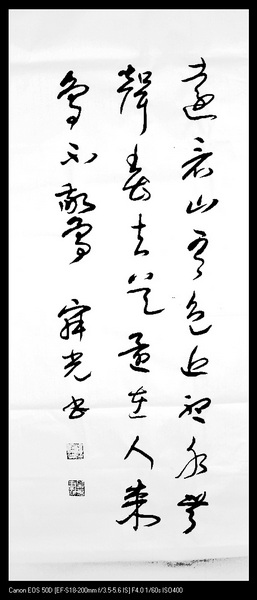 遠看山有色近聽水無
聲春去花還在人來
鳥不驚 光书
Canon EOS 50D [EF-S18-200mm f/3.5-5.6 IS] F4.0 1/60s ISO400